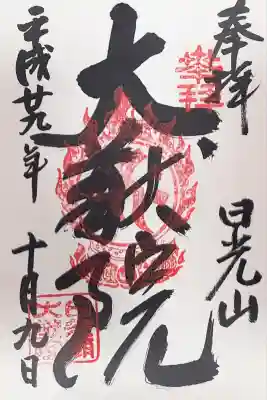 奉拝
日光山
大猷院
平成廿九年
十月九日